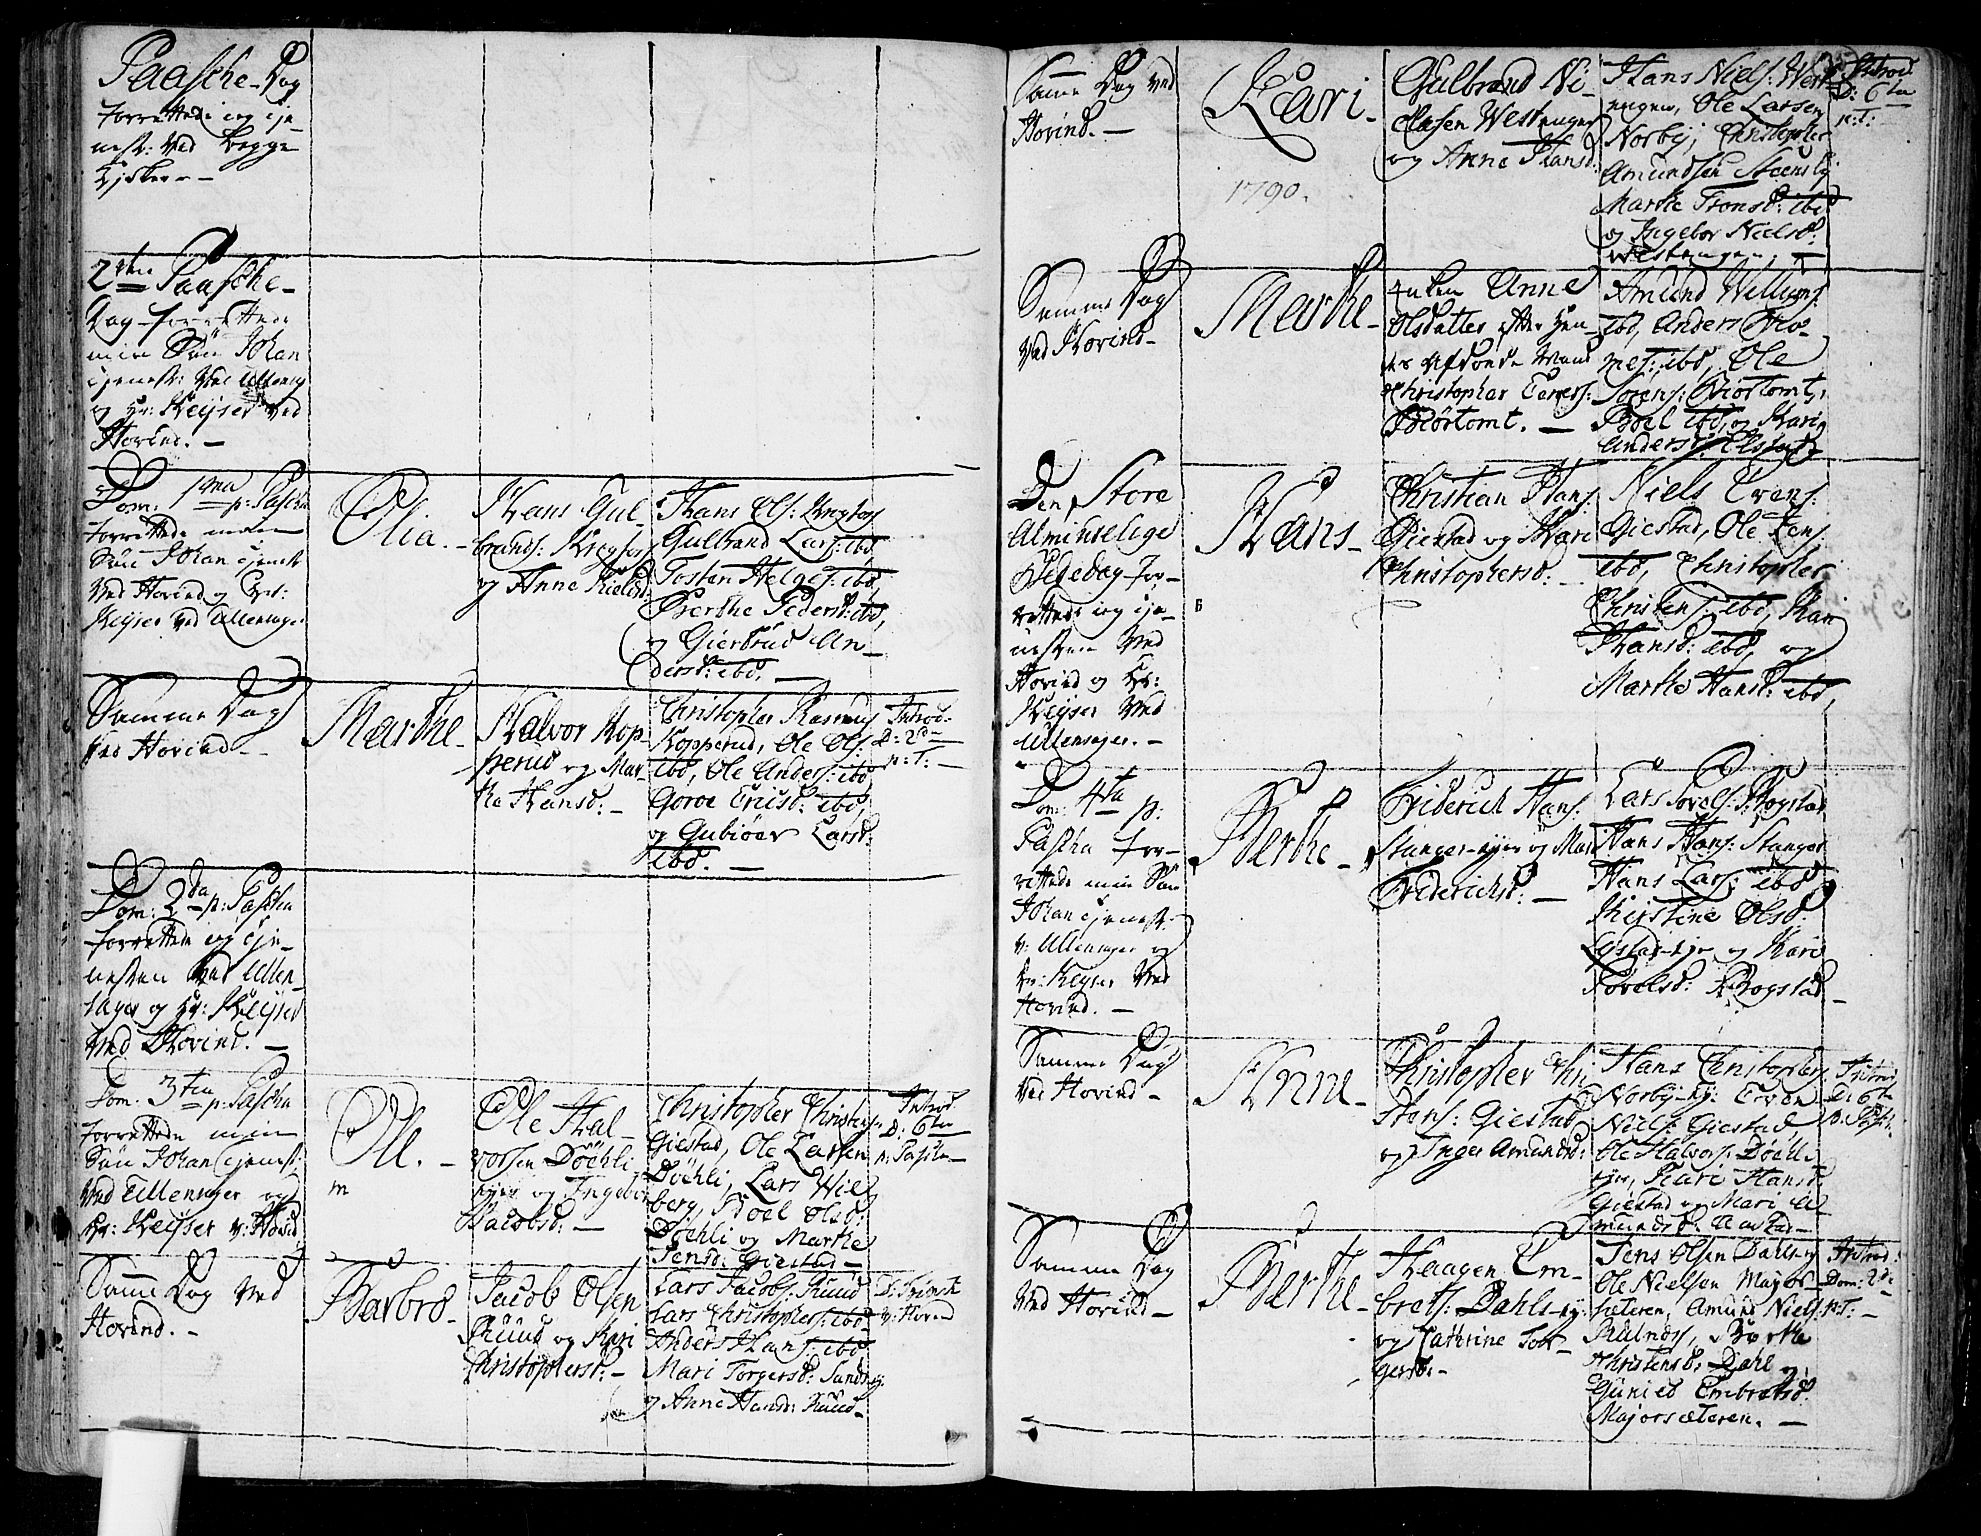 Paasche-Dag
forrettede ieg tje-
nest: ved begge
Kirker. -
2den Paasche-
Dag forrettede
min Søn Johan
tjenest: ved Ullensag
og Hr: Keyser ved
Hovind. -
Dom: 1ma p: Pascha
forrettede min
Søn Johan tjenest
ved Hovind og Hr:
Keyser ved Ullensager
Olia. -
Hans Gul-
brands:
og Anne
Hans Ols:
Gulbrand Lars: ibd
Tosten Helges: ibd,
Berthe Pedersd: ibd,
og Giertrud An-
dersd: ibd. -
Samme Dag
ved Hovind -
Marthe -
Halvor Kop-
perud og Mar-
the Hansd: -
Christopher Rasmus
Kopperud, Ole Ols:
ibd, Ole Anders: ibd
Goroe Ericsd: ibd,
og Gubiøer Larsd:
ibd. -
Introd:
D: 2da
p: T: -
Dom: 2da p: Pascha
forrettede ieg tje-
nesten ved Ullen-
sager og Hr: Keyser
ved Hovind. -
Dom: 3tia p: Pascha
forrettede min
Søn Johan tjenest:
ved Ullensager og
Hr: Keyser v: Hovind
Ole. -
m
Ole Hal-
vorsen Døehli-
eyer og Ingebor
Jacobsd: -
Christopher Christens:
Giestad, Ole Larsen
Døehli, Lars Wil
berg, Boel Olsd:
Døehli og Marthe
Jensd: Giestad -
Introd:
D: 6ta
p: Pascha -
Samme Dag ved
Hovind. -
Barbro -
Jacob Olsen
Ruud og Kari
Christophersd: -
Lars Jacobs: Ruud
Lars Christophers: ibd -
Anders Hans: ibd
Mari Torgersd: Sand
og Anne Hansd: Ruud -
D: Trinit:
v: Hovind
Samme Dag ved
Hovind. -
Kari -
1790.
Gulbrand Ni-
elsen Westenger
og Anne Hansd:
Hans Niels: West
engen, Ole Larsen
Norbÿ, Christopher
Amundsen Steensby
Marthe Tronsd: ibd
og Ingebor Nielsd:
Westengen. -
Introd:
D: 6ta
p: T:
Samme Dag
ved Hovind -
Marthe -
Enken Anne
Olsdatter efter hen-
des afdøede Mand
Christopher Evers:
Biørtomt. -
Amund Willums:
ibd, Anders
ibd, Ole
Sørens: Biørtomt,
Boel ibd, og Kari
Andersd:
Den Store
Almindelige
Bededag for-
rettede ieg tje-
nesten ved
Hovind og Hr:
Keyser ved
Ullensager. -
Hans -
Christian Hans:
Giestad og Mari
Christophersd: -
Niels Evens:
Giestad, Ole Jens:
ibd, Christopher
Christens: ibd, Kari
Hansd: ibd, og
Marthe Hansd: ibd,
Dom: 4ta p:
Pascha for-
rettede min Søn
Johan tjenest:
v: Ullensager og
Hr: Keyser ved
Hovind. -
Berthe -
Friderich Hans:
Stanger-eyer og Mari
Friderichsd: -
Lars Povels: Rogstad
Hans Hans: Stanger
Hans Lars: ibd
Kirstine Olsd:
og Kari
Povelsd: Rogstad -
Samme Dag
ved Hovind -
Anne -
Christopher Chri
stens: Giestad
og Inger Amundsd:
Hans Christophers
Norby-ey: Even
Niels: Giestad
Ole Halvors: Døehli
eyer, Kari Hansd
Giestad og Mari A
mundsd:
Introd:
D: 6ta
p: Pasc:
Samme Dag
ved Hovind -
Berthe -
Haagen Em-
brets: Dahls-ey:
og Cathrine Tost-
gersd: -
Jens Olsen Dahls-ey
Ole Nielsen Majors-
sæteren, Amund Niels:
Kulnæs, Birthe
Christensd: Dahl og
Gunild Embretsd:
Majorsæteren. -
Introd:
Dom: 2da
p: T: -